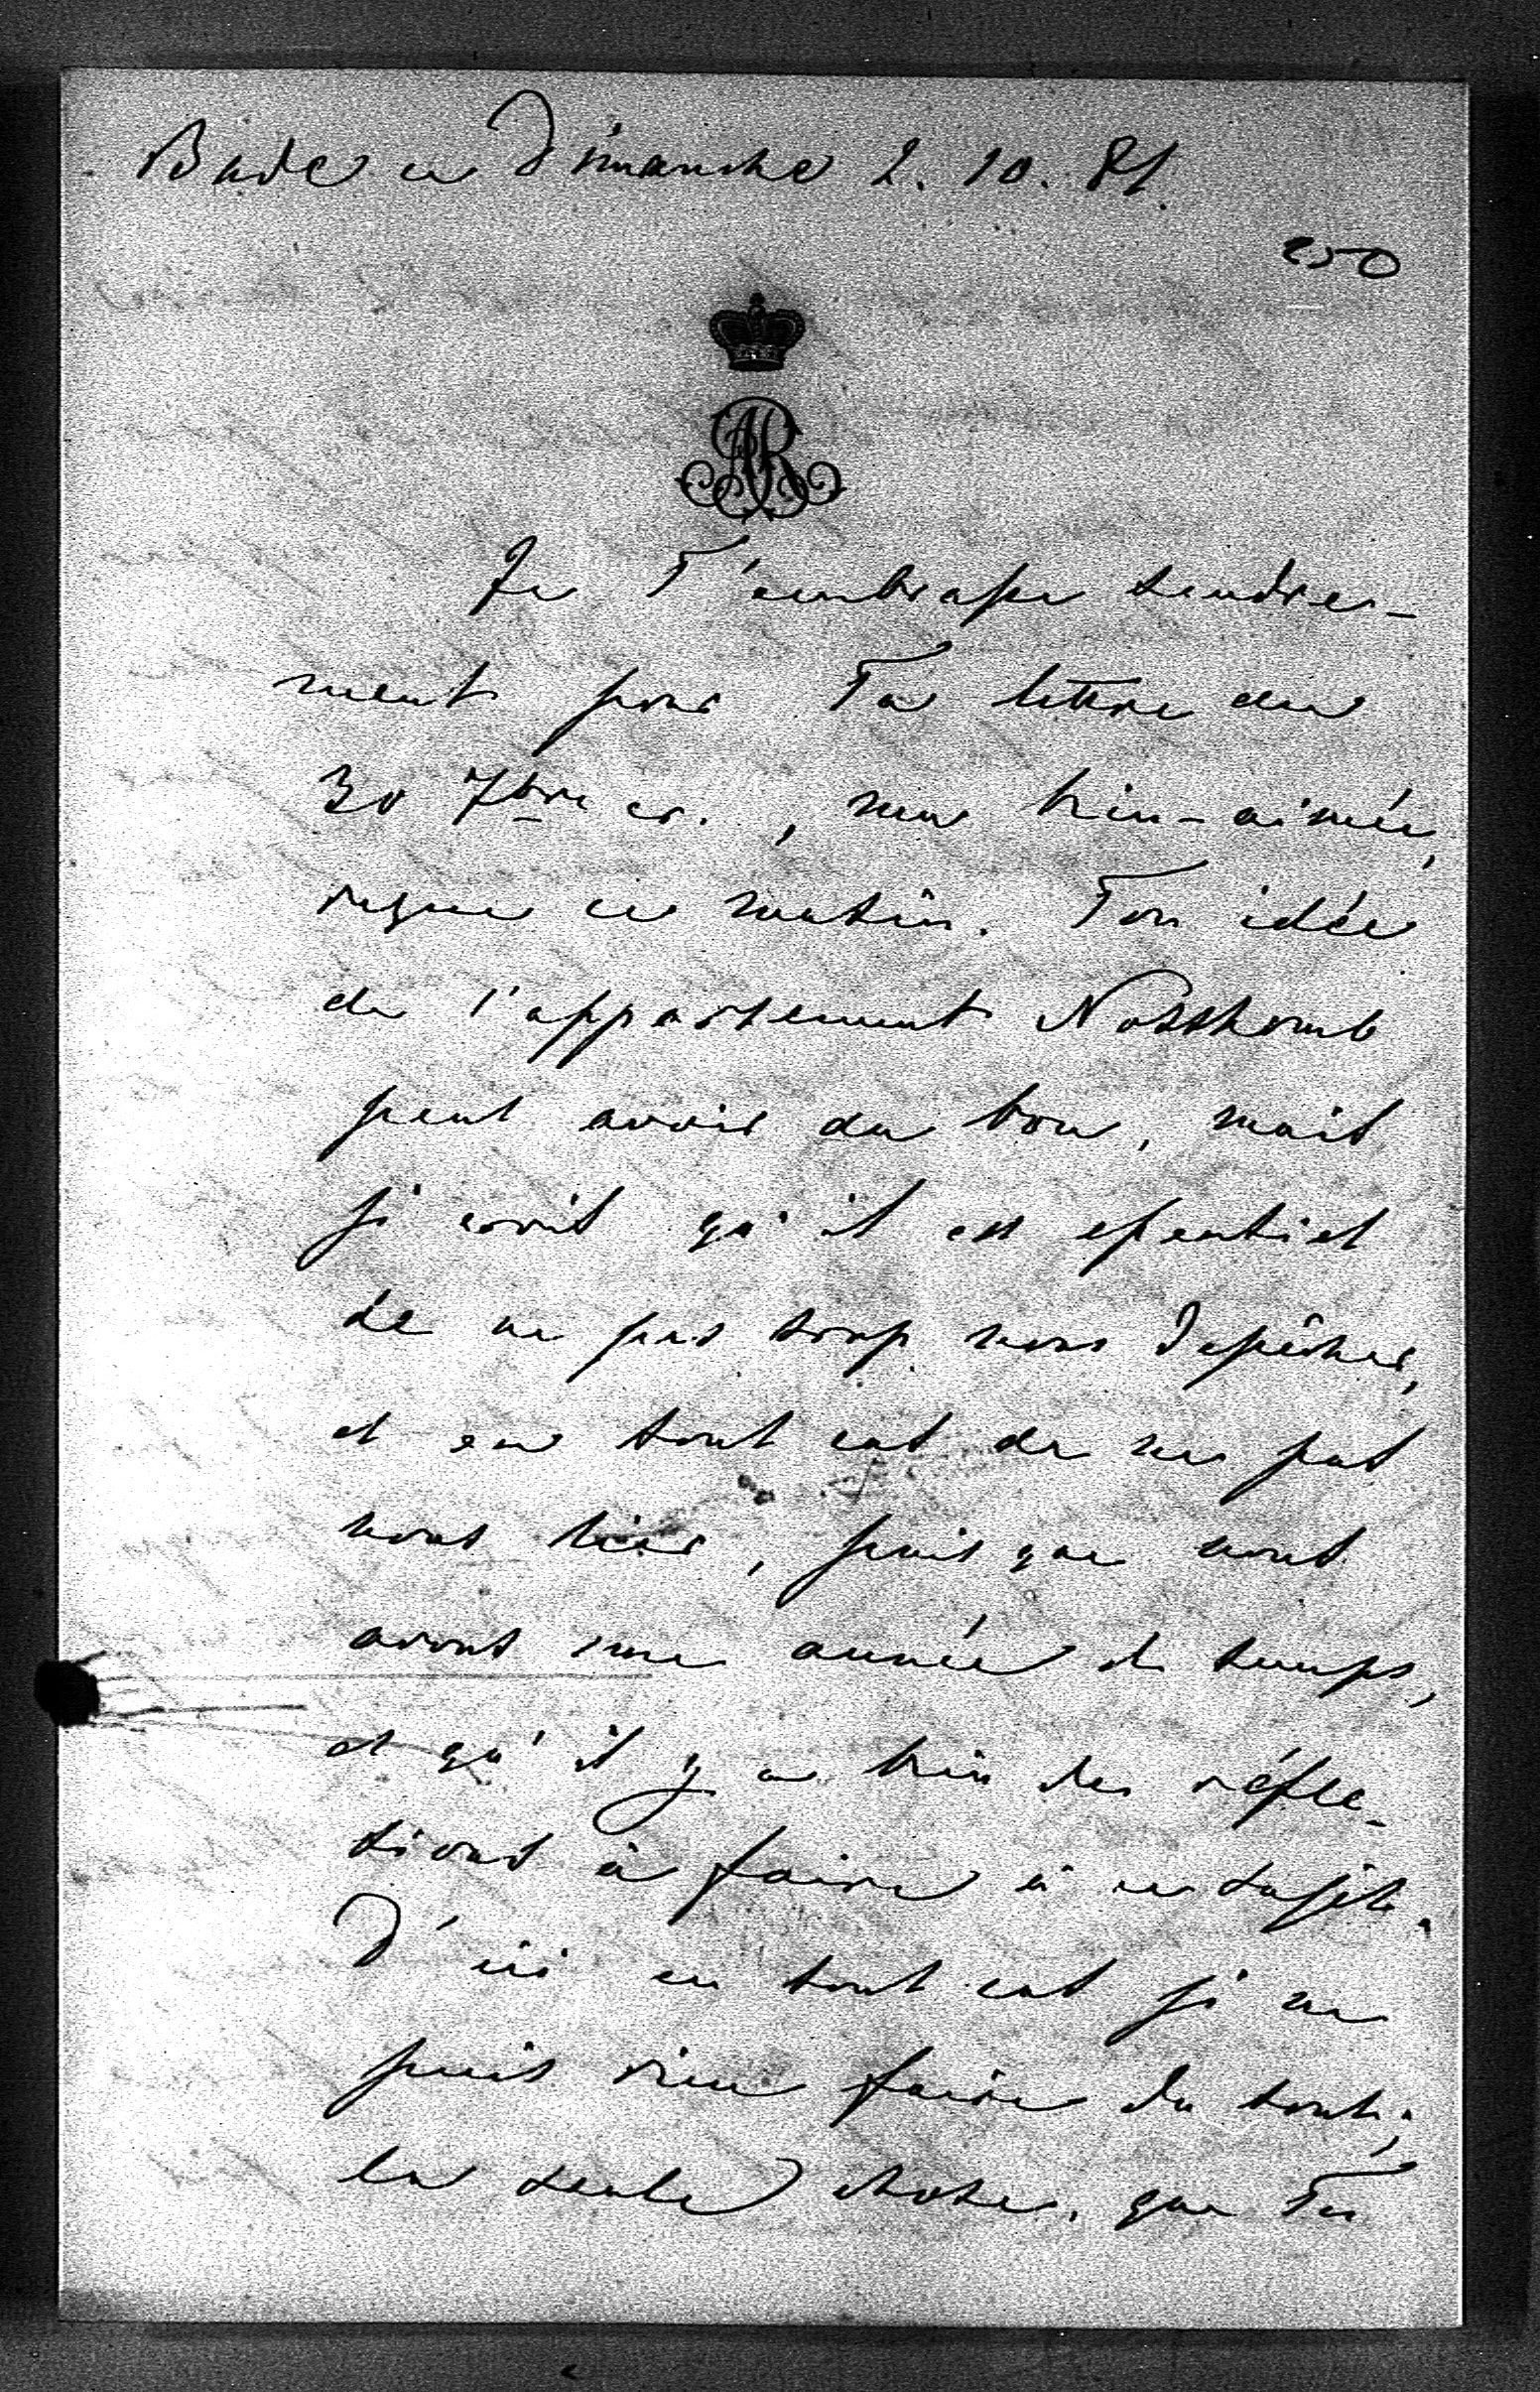 Bade ce Dimanche 2. 10. 81.
250
AR
Je T'embrasse tendre-
ment pour Ta lettre du
30 7bre cr., ma bien-aimée,
reçue ce matin. Ton idée
de l'appartement Nothomb
peut avoir du bon, mais
je crois qu'il est essentiel
de ne pas trop nous dépêcher,
et en tout cas de ne pas
nous lier, puisque nous
avons une année de temps,
et qu'il y a bien des réfle-
xions à faire à ce sujet.
D'ici en tout cas je ne
puis rien faire du tout;
la seule chose, que Tu